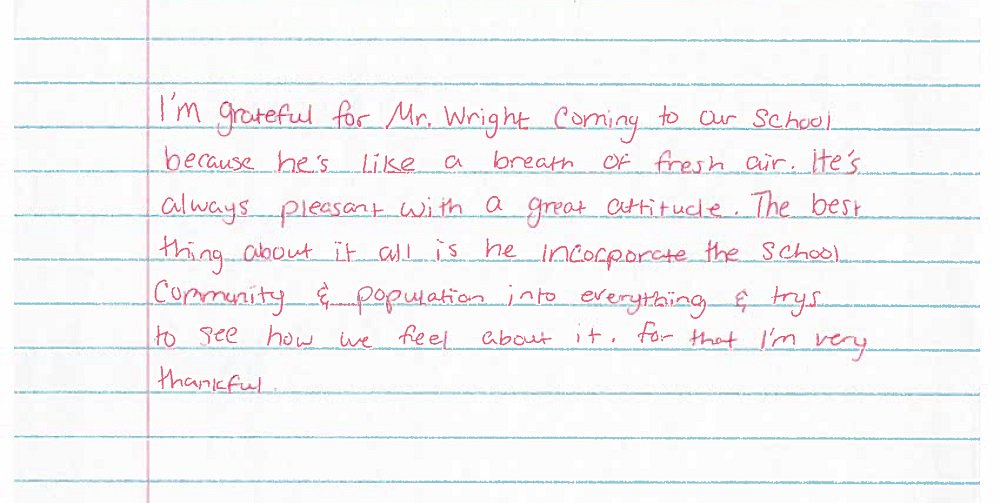 I'm grateful for Mr. Wright Coming to our School
because he's like a breath of fresh air. He's
always pleasant with a great attitude. The best
thing about it all is he incorporate the School
Community & population into everything & trys
to see how we feel about it. for that I'm very
thankful.